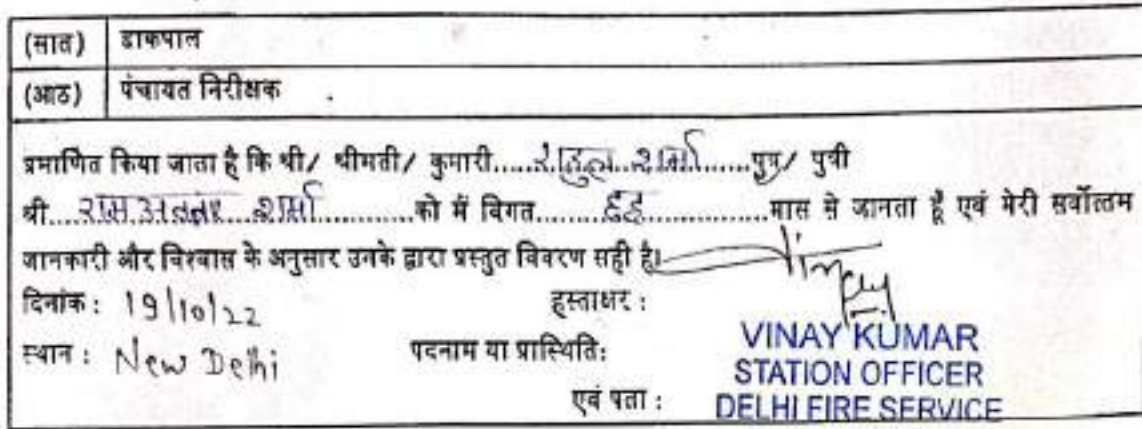 (सात) डाकपाल
(आठ) पंचायत निरीक्षक
प्रमाणित किया जाता है कि श्री/ श्रीमती/ कुमारी.....राहुल शर्मा.......पुत्र/ पुत्री
श्री....राम अवतार शर्मा............को में विगत.........छह..............मास से जानता हूँ एवं मेरी सर्वोत्तम
जानकारी और विश्वास के अनुसार उनके द्वारा प्रस्तुत विवरण सही है।
दिनांक : 19/10/22 हस्ताक्षर :
स्थान : New Delhi पदनाम या प्रास्थिति:
एवं पता :
VINAY KUMAR
STATION OFFICER
DELHI FIRE SERVICE